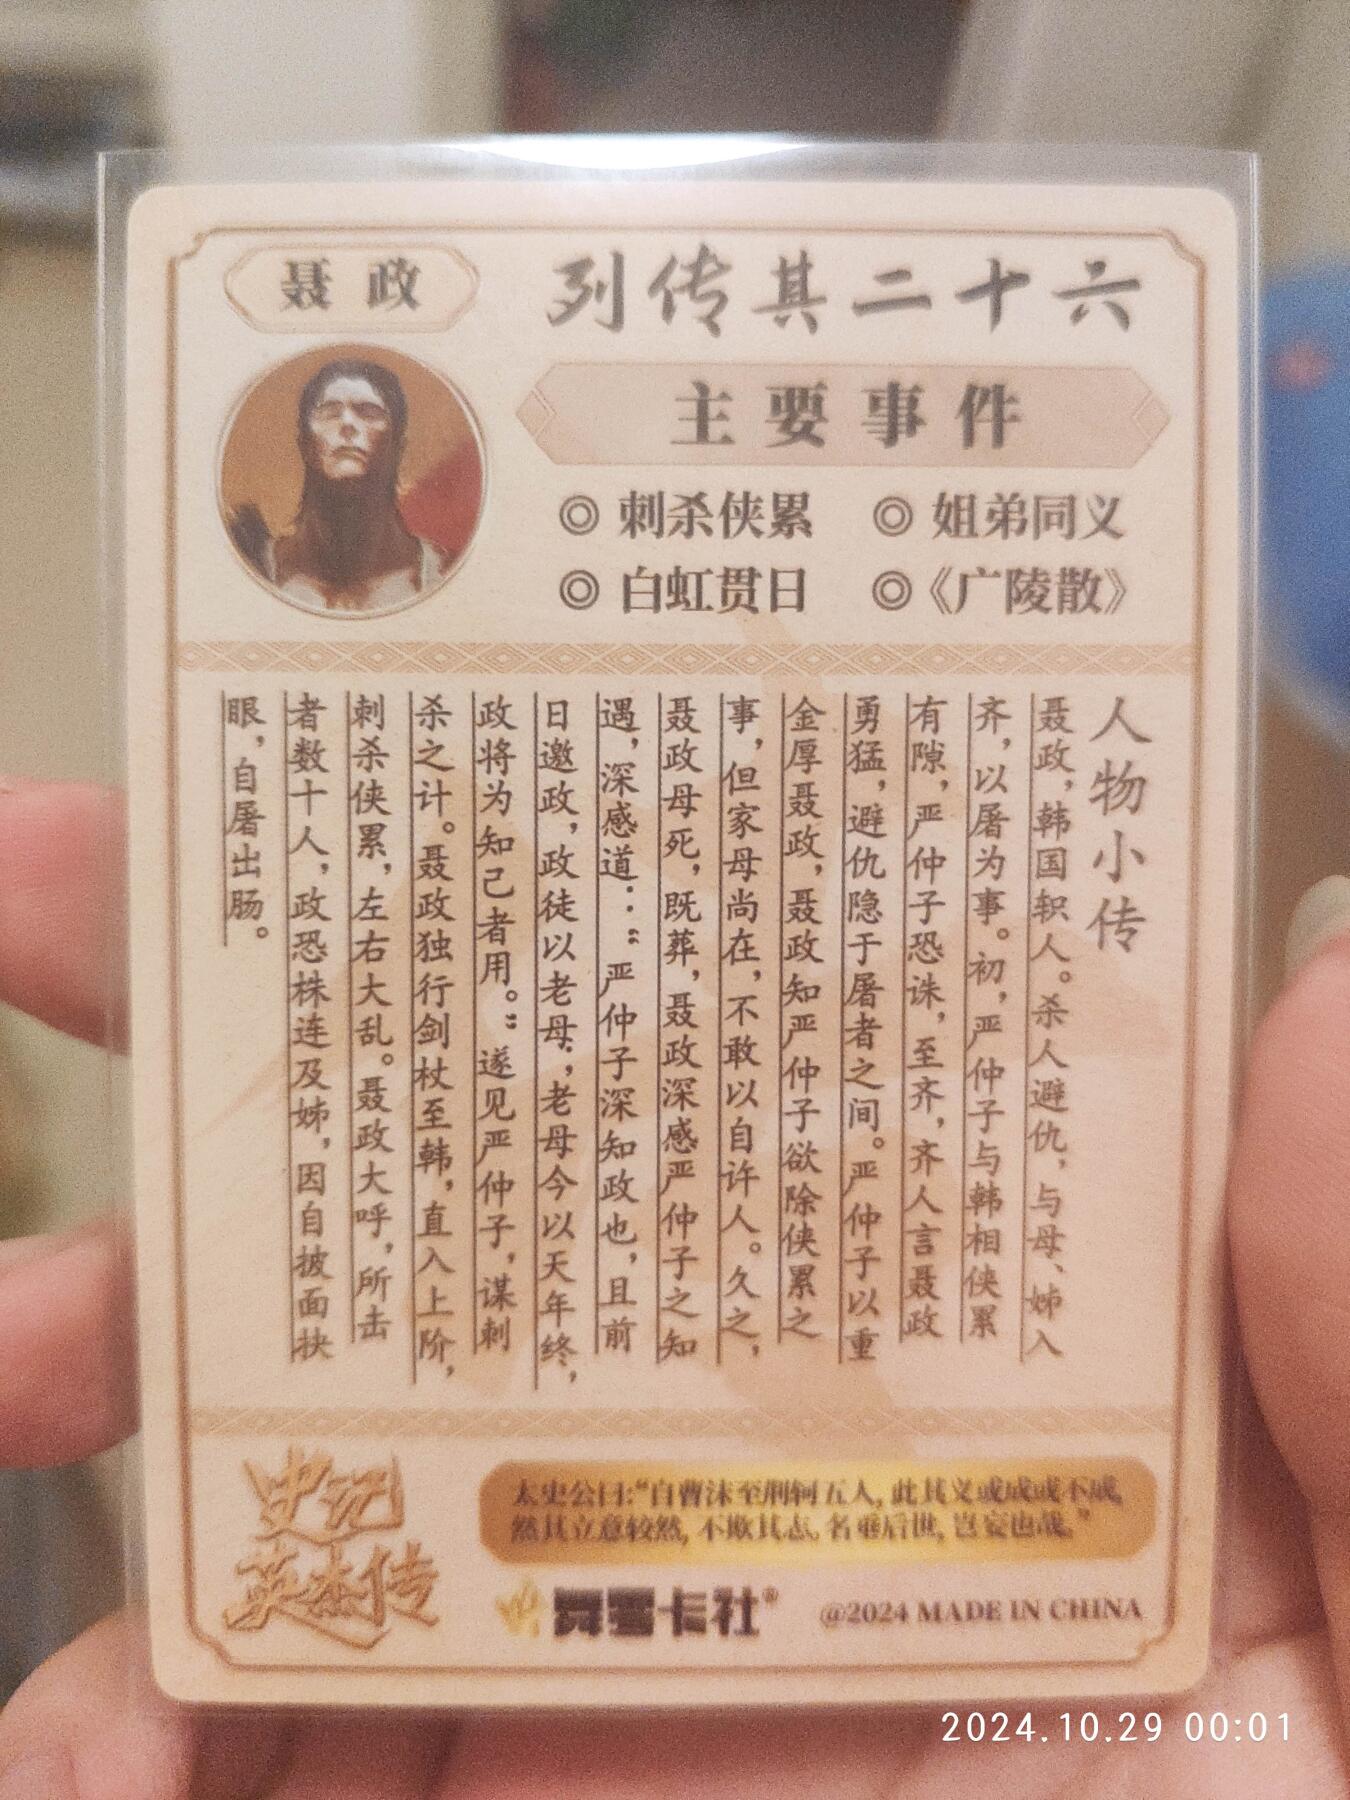 聂政
列传其二十六
主要事件
◎ 刺杀侠累 ◎ 姐弟同义
◎ 白虹贯日 ◎《广陵散》
人物小传
聂政，韩国轵人。杀人避仇，与母、姊入
齐，以屠为事。初，严仲子与韩相侠累
有隙，严仲子恐诛，至齐，齐人言聂政
勇猛，避仇隐于屠者之间。严仲子以重
金厚聂政，聂政知严仲子欲除侠累之
事，但家母尚在，不敢以自许人。久之，
聂政母死，既葬，聂政深感严仲子之知
遇，深感道：“严仲子深知政也，且前
日邀政，政徒以老母；老母今以天年终，
政将为知己者用。”遂见严仲子，谋刺
杀之计。聂政独行剑杖至韩，直入上阶，
刺杀侠累，左右大乱。聂政大呼，所击
者数十人，政恐株连及姊，因自披面抉
眼，自屠出肠。
史记
英杰传
太史公曰：“自曹沫至荆轲五人，此其义或成或不成，
然其立意较然，不欺其志，名垂后世，岂妄也哉。”
卡社®
@2024 MADE IN CHINA
2024.10.29 00:01